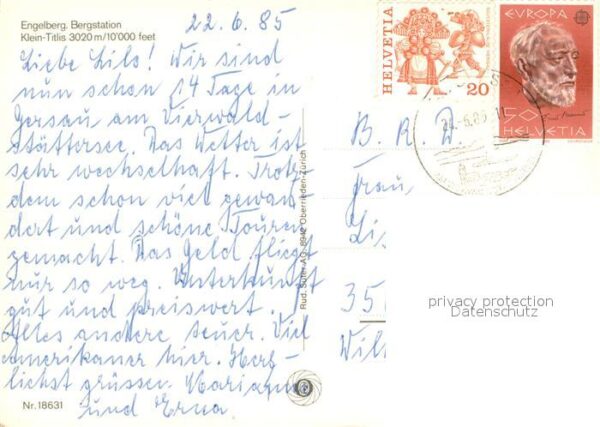 Engelberg. Bergstation
Klein-Titlis 3020 m/10'000 feet
22.6.85
Liebe Lilo! Wir sind
nun schon 14 Tage in
Gersau am Vierwald-
stättersee. Das Wetter ist
sehr wechselhaft. Trotz-
dem schon viel gewan-
dert und schöne Touren
gemacht. Das Geld fliegt
nur so weg. Unterkunft
gut und preiswert.
Alles andere teuer. Viel
Amerikaner hier. Herz-
lichst grüssen Marianne
und Erna.
Nr. 18631
Rud. Suter AG, 8942 Oberrieden-Zürich
HELVETIA
20
EVROPA
50
HELVETIA
B. R. D.
Frau
Li
35
Wil
privacy protection
Datenschutz